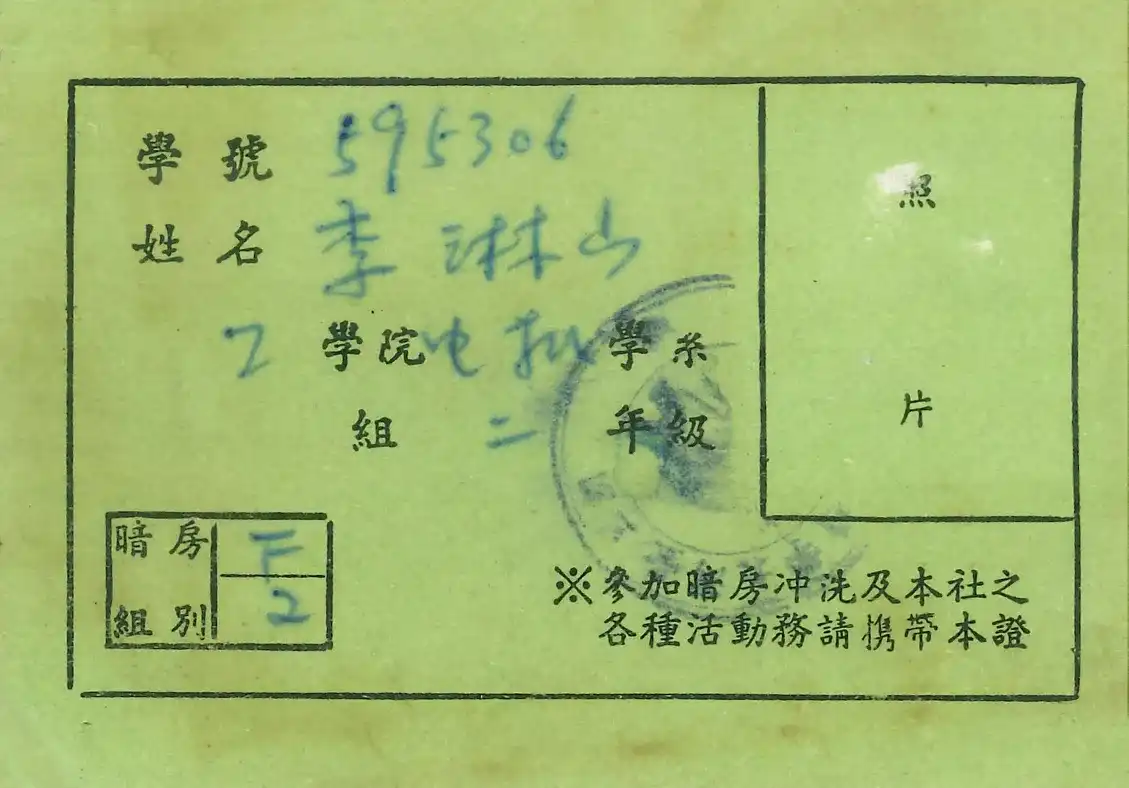 學號 595306
姓名 李琳山
工 學院 电机 學系
組 二 年級
照
片
暗房 F
組別 2
※參加暗房冲洗及本社之
各種活動務請携帶本證